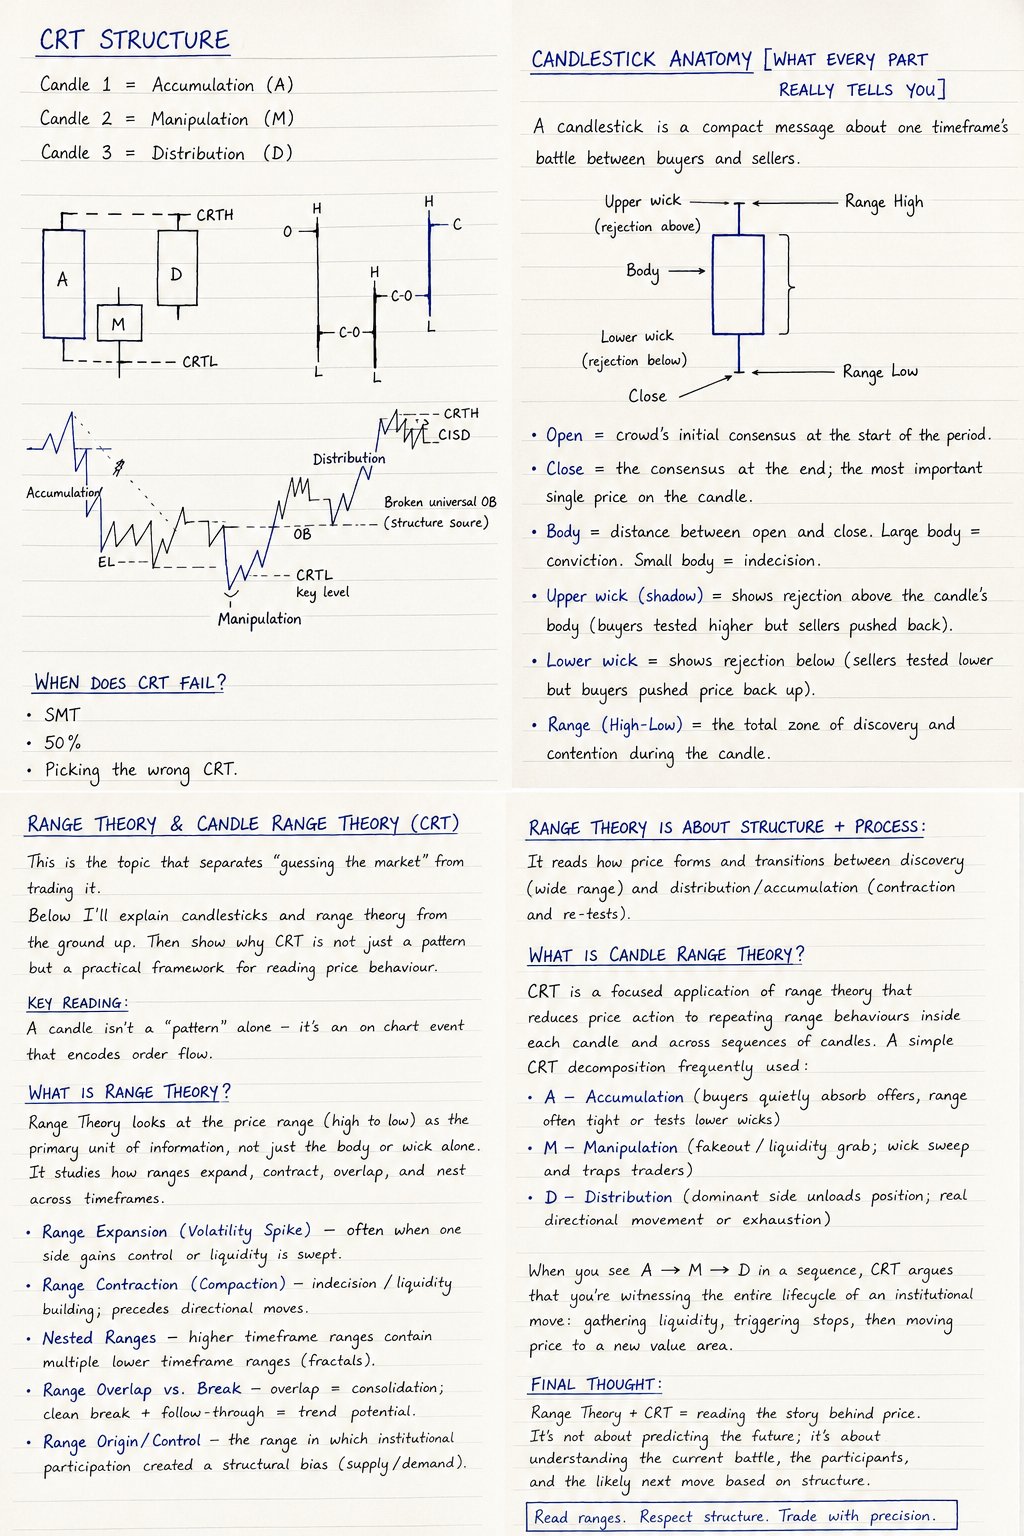 CRT STRUCTURE
Candle 1 = Accumulation (A)
Candle 2 = Manipulation (M)
Candle 3 = Distribution (D)
CRTH
A
M
D
CRTL
H
O
C-O
L
H
C-O
L
H
C
L
CRTH
CISD
Distribution
$
Accumulation
Broken universal OB
(structure soure)
OB
EL
CRTL
key level
Manipulation
WHEN DOES CRT FAIL?
• SMT
• 50%
• Picking the wrong CRT.
CANDLESTICK ANATOMY [WHAT EVERY PART
REALLY TELLS YOU]
A candlestick is a compact message about one timeframe's
battle between buyers and sellers.
Upper wick
(rejection above)
Range High
Body
Lower wick
(rejection below)
Range Low
Close
• Open = crowd's initial consensus at the start of the period.
• Close = the consensus at the end; the most important
single price on the candle.
• Body = distance between open and close. Large body =
conviction. Small body = indecision.
• Upper wick (shadow) = shows rejection above the candle's
body (buyers tested higher but sellers pushed back).
• Lower wick = shows rejection below (sellers tested lower
but buyers pushed price back up).
• Range (High-Low) = the total zone of discovery and
contention during the candle.
RANGE THEORY & CANDLE RANGE THEORY (CRT)
This is the topic that separates "guessing the market" from
trading it.
Below I'll explain candlesticks and range theory from
the ground up. Then show why CRT is not just a pattern
but a practical framework for reading price behaviour.
KEY READING:
A candle isn't a "pattern" alone – it's an on chart event
that encodes order flow.
WHAT IS RANGE THEORY?
Range Theory looks at the price range (high to low) as the
primary unit of information, not just the body or wick alone.
It studies how ranges expand, contract, overlap, and nest
across timeframes.
• Range Expansion (Volatility Spike) – often when one
side gains control or liquidity is swept.
• Range Contraction (Compaction) – indecision / liquidity
building; precedes directional moves.
• Nested Ranges – higher timeframe ranges contain
multiple lower timeframe ranges (fractals).
• Range Overlap vs. Break – overlap = consolidation;
clean break + follow-through = trend potential.
• Range Origin/Control – the range in which institutional
participation created a structural bias (supply/demand).
RANGE THEORY IS ABOUT STRUCTURE + PROCESS:
It reads how price forms and transitions between discovery
(wide range) and distribution/accumulation (contraction
and re-tests).
WHAT IS CANDLE RANGE THEORY?
CRT is a focused application of range theory that
reduces price action to repeating range behaviours inside
each candle and across sequences of candles. A simple
CRT decomposition frequently used:
• A – Accumulation (buyers quietly absorb offers, range
often tight or tests lower wicks)
• M – Manipulation (fakeout / liquidity grab; wick sweep
and traps traders)
• D – Distribution (dominant side unloads position; real
directional movement or exhaustion)
When you see A → M → D in a sequence, CRT argues
that you're witnessing the entire lifecycle of an institutional
move: gathering liquidity, triggering stops, then moving
price to a new value area.
FINAL THOUGHT:
Range Theory + CRT = reading the story behind price.
It's not about predicting the future; it's about
understanding the current battle, the participants,
and the likely next move based on structure.
Read ranges. Respect structure. Trade with precision.